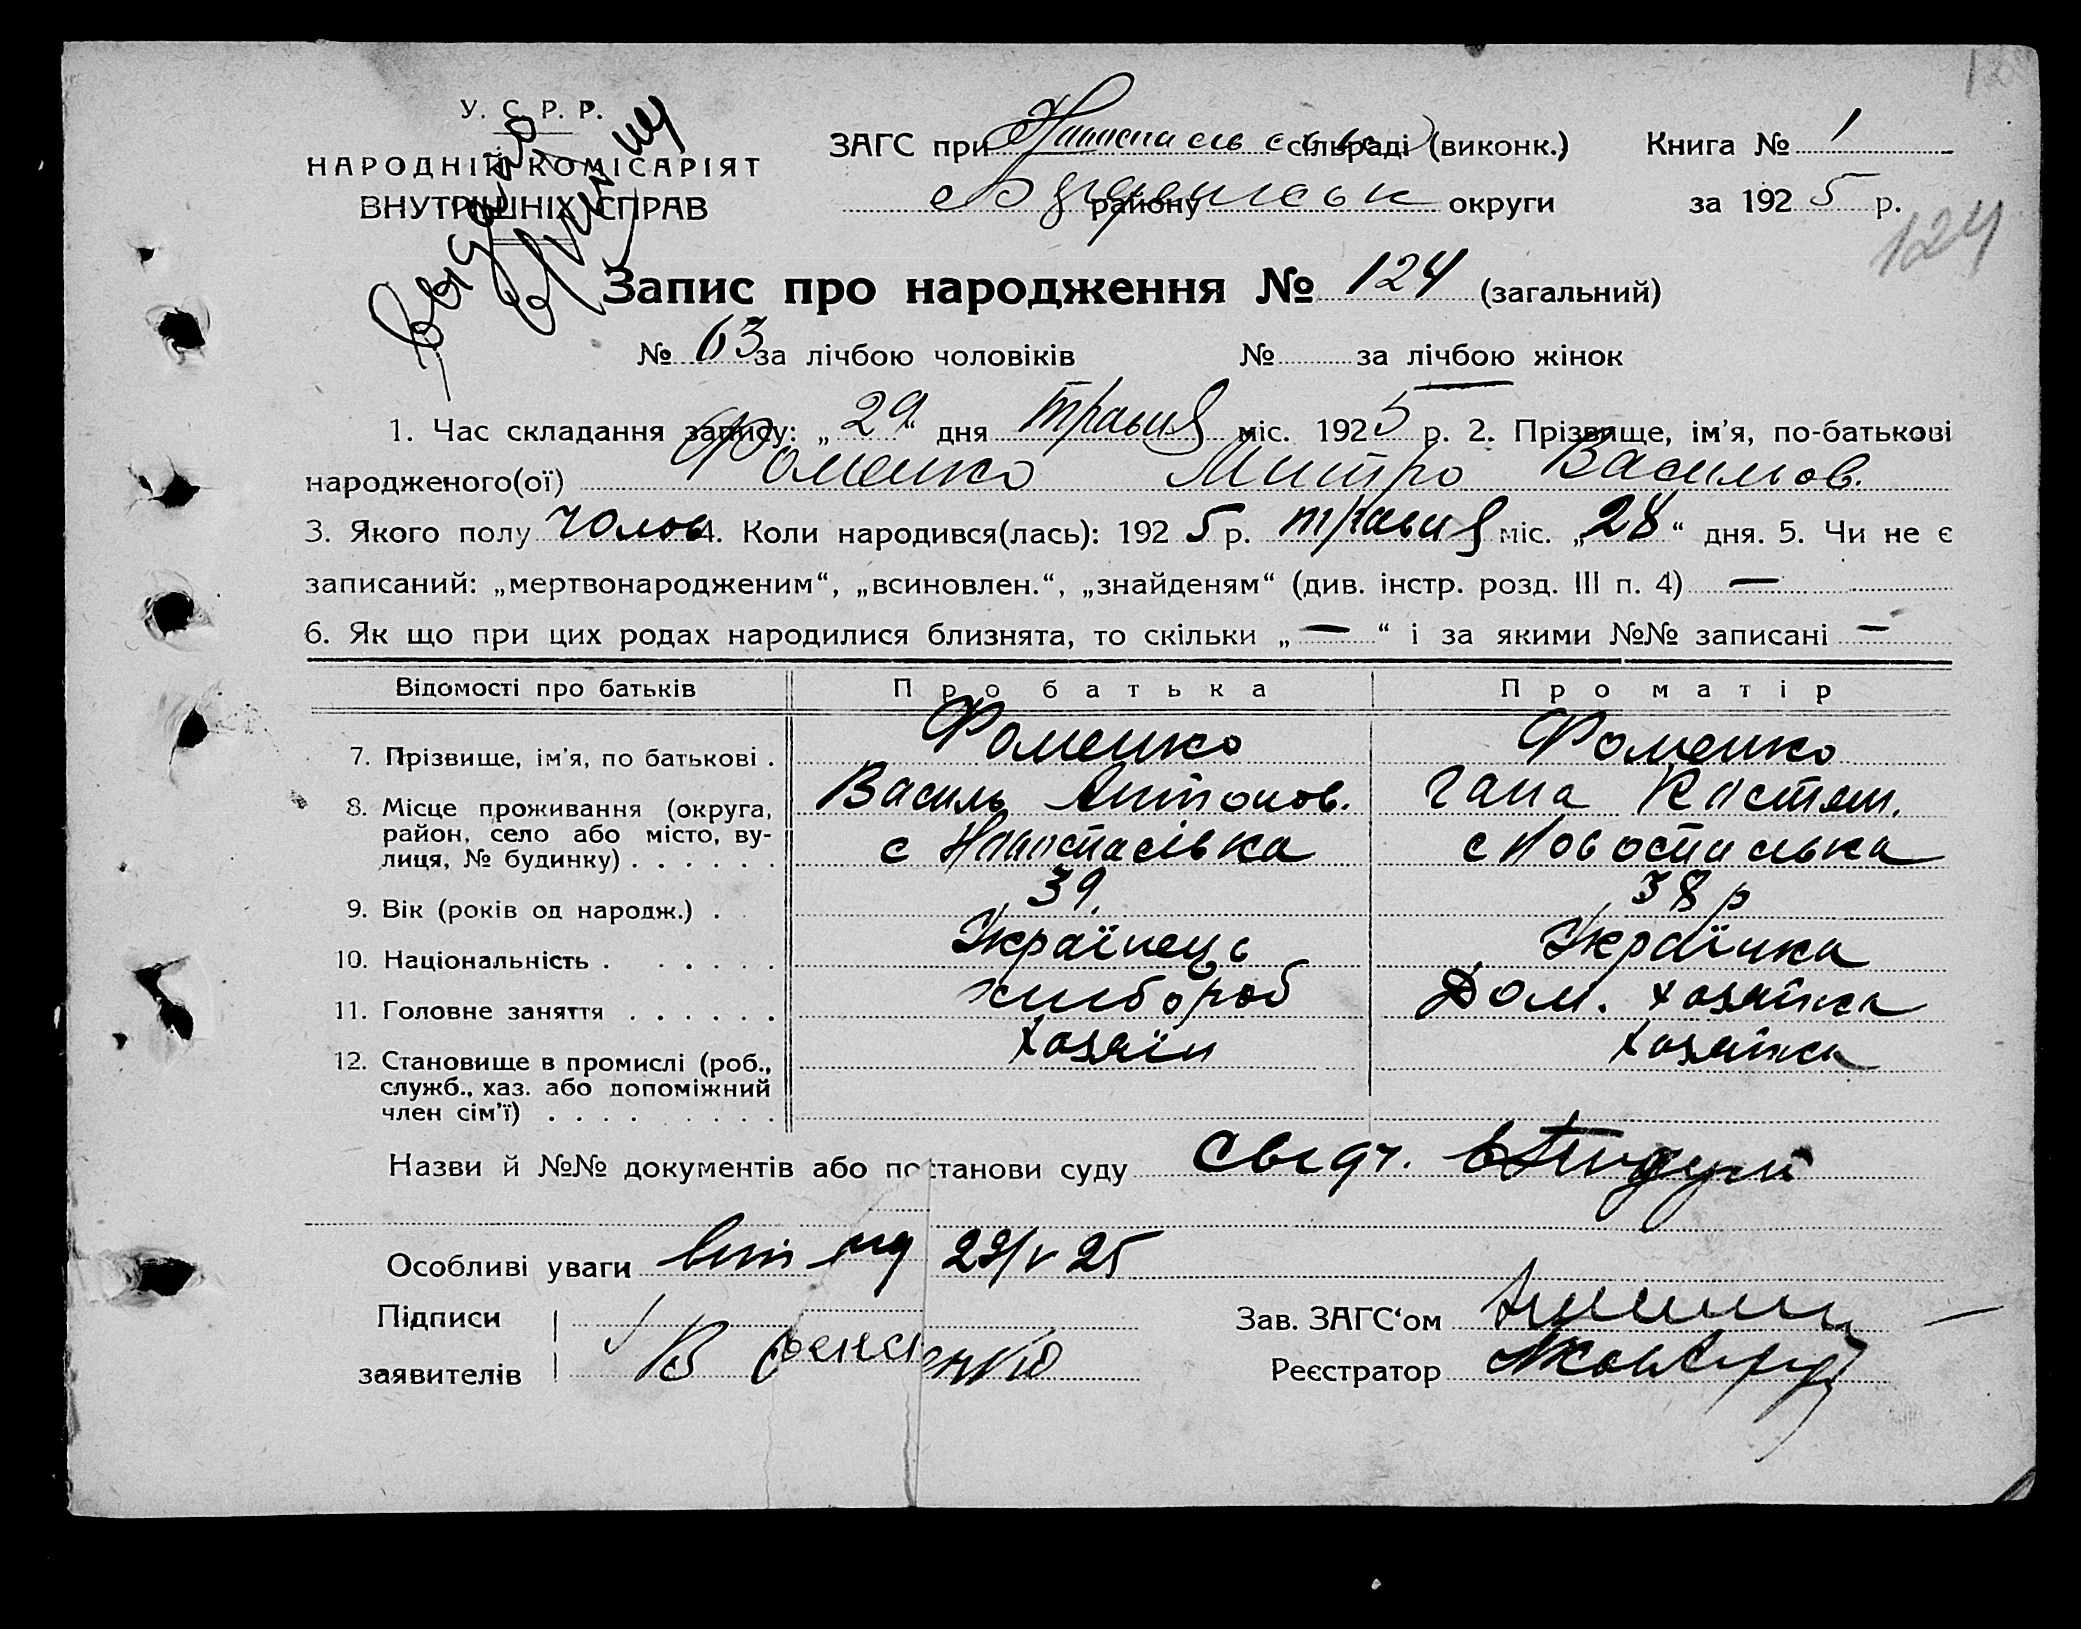 У. С. Р. Р.
НАРОДНІЙ КОМІСАРІЯТ
ВНУТРІШНІХ СПРАВ
ЗАГС при сільраді (виконк.) Книга № 1
району округи за 1925 р.
124
Запис про народження № 124 (загальний)
№ 63 за лічбою чоловіків № за лічбою жінок
1. Час складання запису: „29“ дня травня міс. 1925 р. 2. Прізвище, ім’я, по-батькові
народженого(ої) Фоменко Митро Васильов.
3. Якого полу чолов 4. Коли народився(лась): 1925 р. травня міс. „28“ дня. 5. Чи не є
записаний: „мертвонародженим“, „всиновлен.“, „знайденям“ (див. інстр. розд. III п. 4) —
6. Як що при цих родах народилися близнята, то скільки „—“ і за якими №№ записані —
Відомості про батьків Про батька Про матір
7. Прізвище, ім’я, по батькові . Фоменко Фоменко
Василь Антонов. Гана Костян.
8. Місце проживання (округа,
район, село або місто, ву-
лиця, № будинку) . . . . . . с Новоспасівка с Новоспасівка
9. Вік (років од народж.) . 39. 38 р
10. Національність . . . . . . Українець Українка
11. Головне заняття . . . . . . хлібороб Дом. хазяйка
12. Становище в промислі (роб.,
служб., хаз. або допоміжний
член сім’ї) . . . . . . . . . хазяїн хазяйка
Назви й №№ документів або постанови суду
Особливі уваги 29/V 25
Підписи
заявителів
Зав. ЗАГС‘ом
Реєстратор